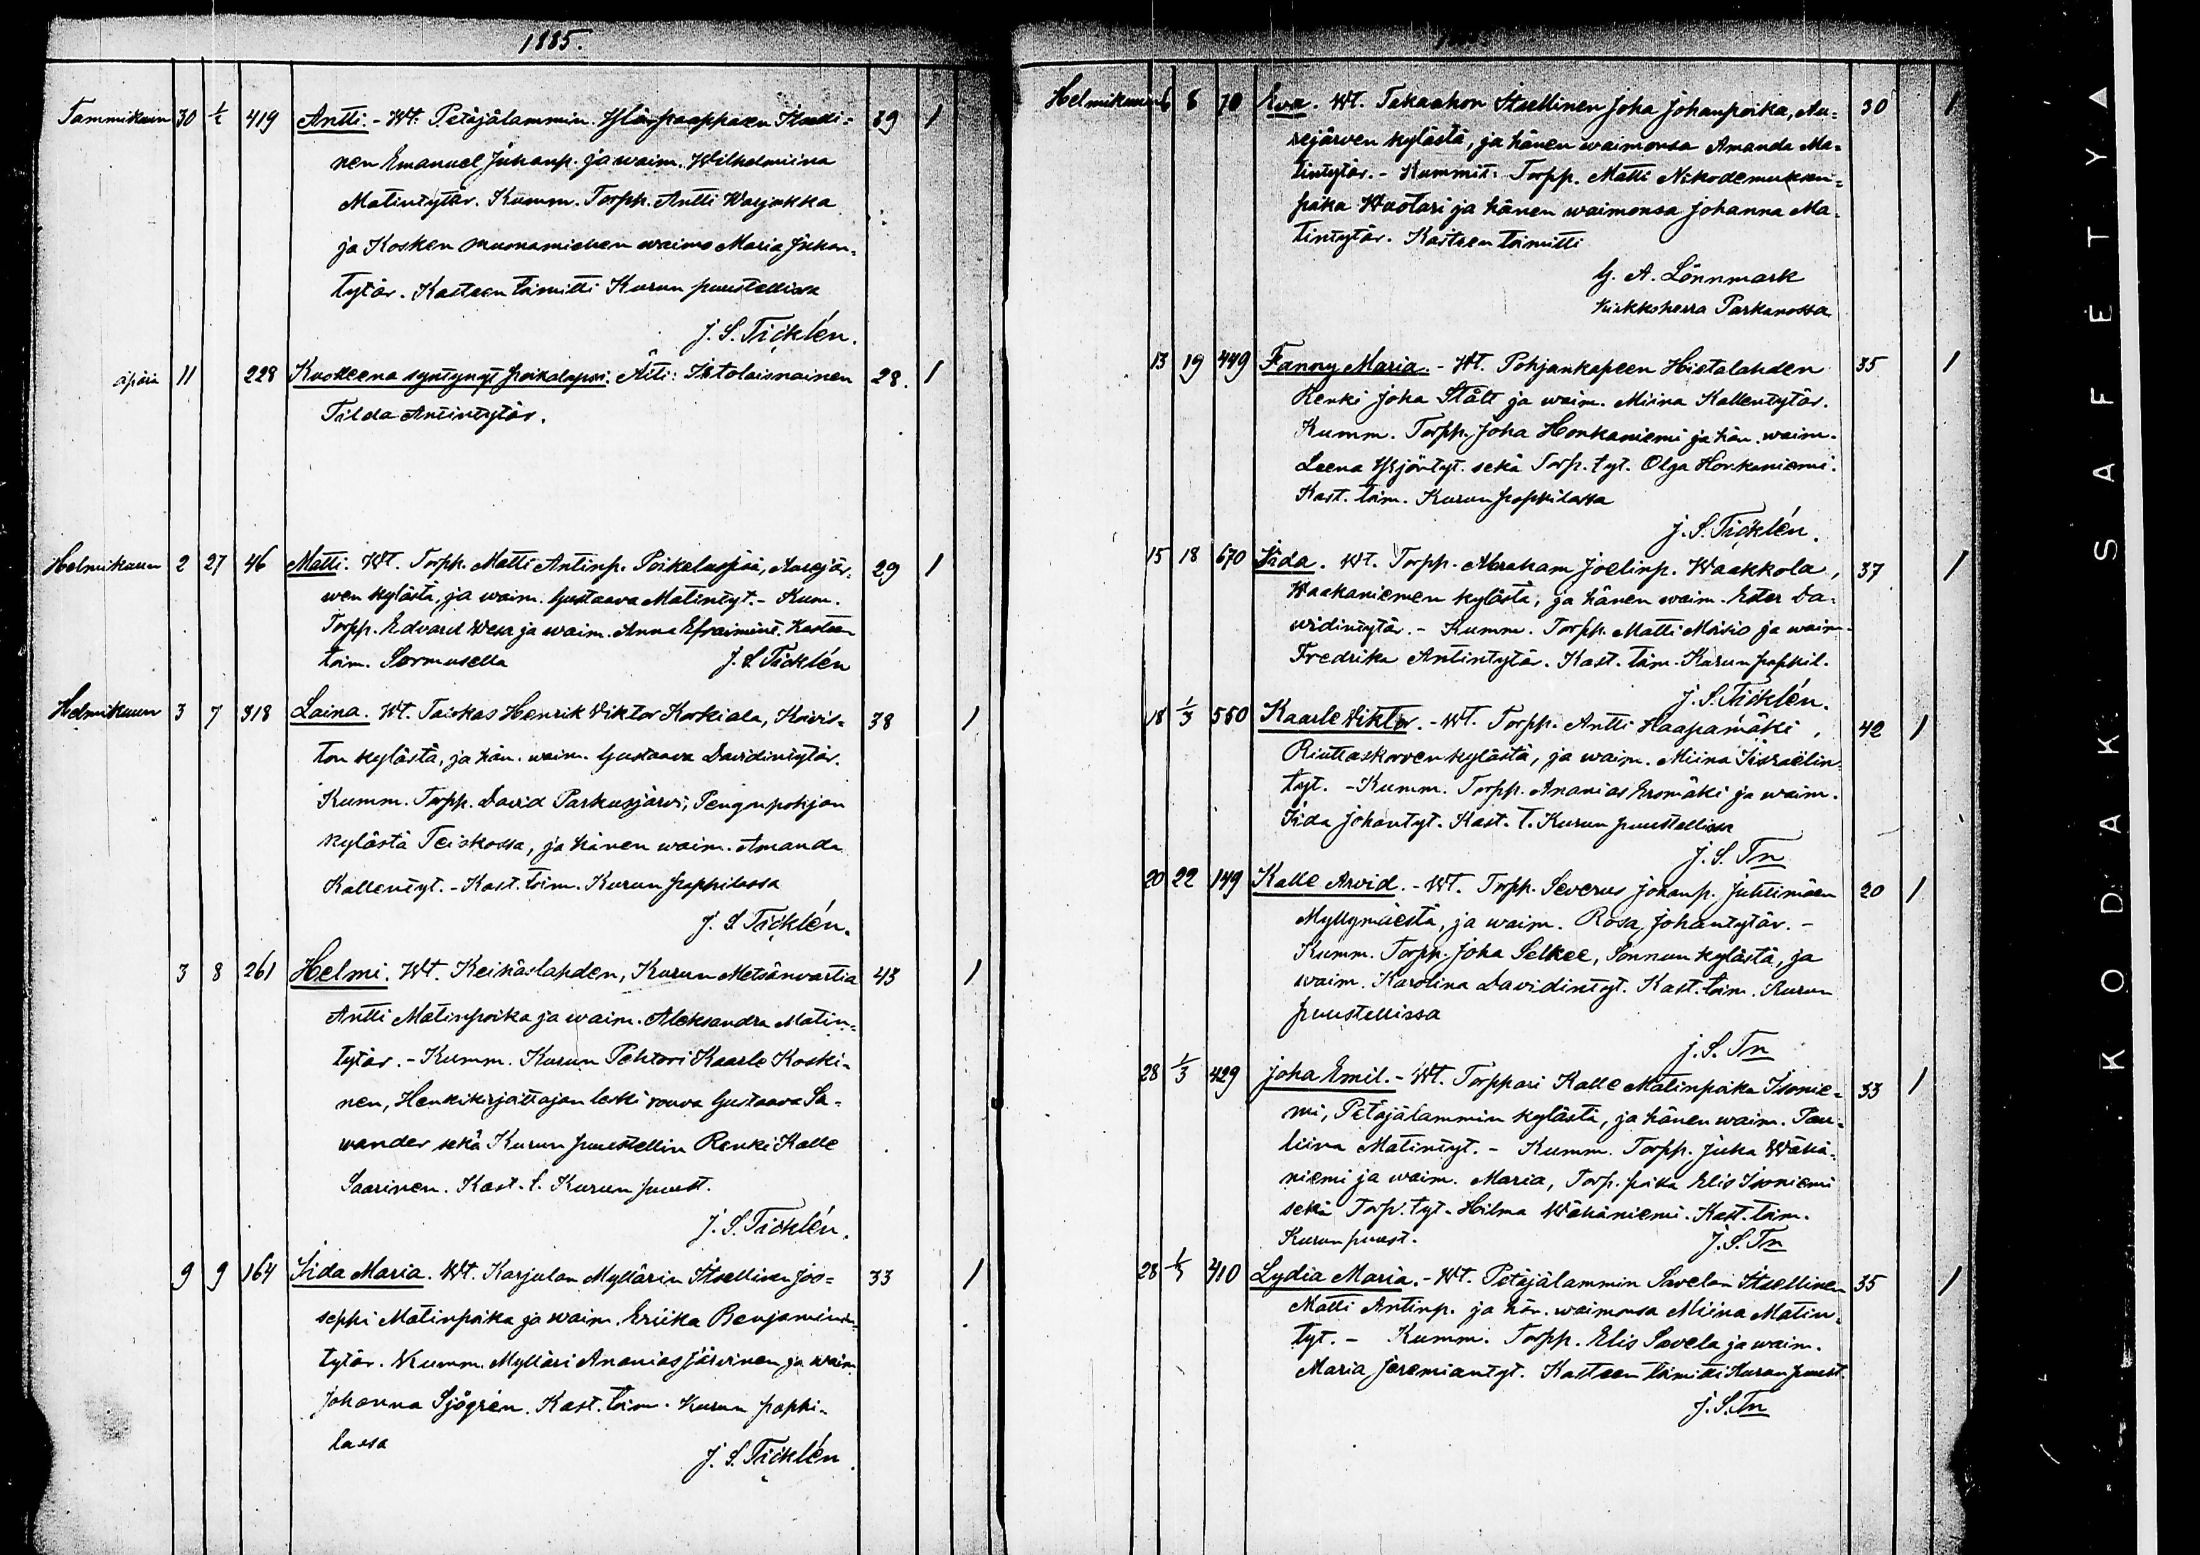 1885.
Tammikuun 30 1/2 419 Antti. - Wt. Petäjälammin Itselli= 39 1
nen Emanuel Juhanp. ja waim. Wilhelmiina
Matintytär. Kumm. Torpp. Antti Warjakka
ja Kosken muonamiehen waimo Maria Juhan=
tytär. Kasteen toimitti Kurun puustellissa
J. S. Ticklén.
äpärä 11 228 Kuolleena syntynyt poikalapsi. Äiti: Istolaisnainen 28. 1
Tilda Antintytär.
Helmikuun 2 27 46 Matti. Wt. Torpp. Matti Antinp. Poikeluspää, Aurejär= 29 1
wen kylästä, ja waim. Gustaava Matintyt. - Kum.
Torpp. Edvard Wesa ja waim. Anna Efraimint. Kasteen
toim. Sormusella J. S. Ticklén
Helmikuun 3 7 318 Laina. Wt. Taiskas Henrik Viktor Korkiala, Koivis= 38 1
ton kylästä, ja hän. waim. Gustaava Davidintytär.
Kumm. Torpp. David Parkusjärvi, Pengonpohjan
kylästä Teiskossa, ja hänen waim. Amanda
Kallentyt. - Kast. toim. Kurun pappilassa
J. S. Ticklén.
3 8 261 Helmi. Wt. Keihäslahden, Kurun Metsänvartia 43 1
Antti Matinpoika ja waim. Aleksandra Matin=
tytär. - Kumm. Kurun Tohtori Kaarlo Koski=
nen, Henkikirjoittajan leski rouva Gustaava Sa=
wander sekä Kurun puustellin Renki Kalle
Saarinen. Kast. t. Kurun puust.
J. S. Ticklén.
9 9 164 Iida Maria. Wt. Karjulan Myllärin Itsellinen Joo= 33 1
seppi Matinpoika ja waim. Eriika Benjamin
tytär. Kumm. Mylläri Ananias Järvinen ja waim.
Johanna Sjögrén. Kast. toim. Kurun pappi=
lassa
J. S. Ticklén.
Helmikuun 6 8 70 Eva. Wt. Takaahon Itsellinen Joha Johanpoika, Au= 30 1
rejärwen kylästä, ja hänen waimonsa Amanda Ma=
tintytär. - Kummit: Torpp. Matti Nikodemuksen=
poika Huotari ja hänen waimonsa Johanna Ma=
tintytär. Kasteen toimitti
G. A. Lönnmark
Kirkkoherra Parkanossa.
13 19 449 Fanny Maria. - Wt. Pohjankapeen Hietalahden 35 1
Renki Joha Stålt ja waim. Miina Kallentytär.
Kumm. Torpp. Joha Honkaniemi ja hän. waim.
Leena Yrjöntyt. sekä Torp. tyt. Olga Honkaniemi.
Kast. toim. Kurun pappilassa
J. S. Ticklén.
15 18 670 Iida. Wt. Torpp. Abraham Joelinp. Waakkola, 37 1
Waakaniemen kylästä, ja hänen waim. Ester Da=
vidintytär. - Kumm. Torpp. Matti Moisio ja waim.
Fredrika Antintytär. Kast. toim. Kurun pappil.
J. S. Ticklén.
18 1/3 550 Kaarle Viktor. - Wt. Torpp. Antti Haapamäki, 42 1
Riuttaskorven kylästä, ja waim. Miina Iisraëlin=
tyt. - Kumm. Torpp. Ananias Eromäki ja waim.
Iida Johantyt. Kast. t. Kurun puustellissa
J. S. Tn
20 22 149 Kalle Arvid. - Wt. Torpp. Severus Johanp. Juhtimäen 20 1
Myllymäestä, ja waim. Rosa Johantytär. -
Kumm. Torpp. Joha Selkee, Sonnun kylästä, ja
waim. Karolina Davidintyt. Kast. toim. Kurun
puustellissa
J. S. Tn
28 1/3 429 Joha Emil. - Wt. Torppari Kalle Matinpoika Isonie= 33 1
mi, Petäjälammin kylästä, ja hänen waim. Pau=
liina Matintyt. - Kumm. Torpp. Juha Wähä=
niemi ja waim. Maria, Torp. poika Elis Isoniemi
sekä Torp. tyt. Hilma Wähäniemi. Kast. toim.
Kurun puust. J. S. Tn
28 1/3 410 Lydia Maria. - Wt. Petäjälammin Savelan Itsellinen 35 1
Matti Antinp. ja hän. waimonsa Miina Matin=
tyt. - Kumm. Torpp. Elis Savela ja waim.
Maria Jeremiantyt. Kasteen toimitti Kurun puust.
J. S. Tn
KODAK SAFETY